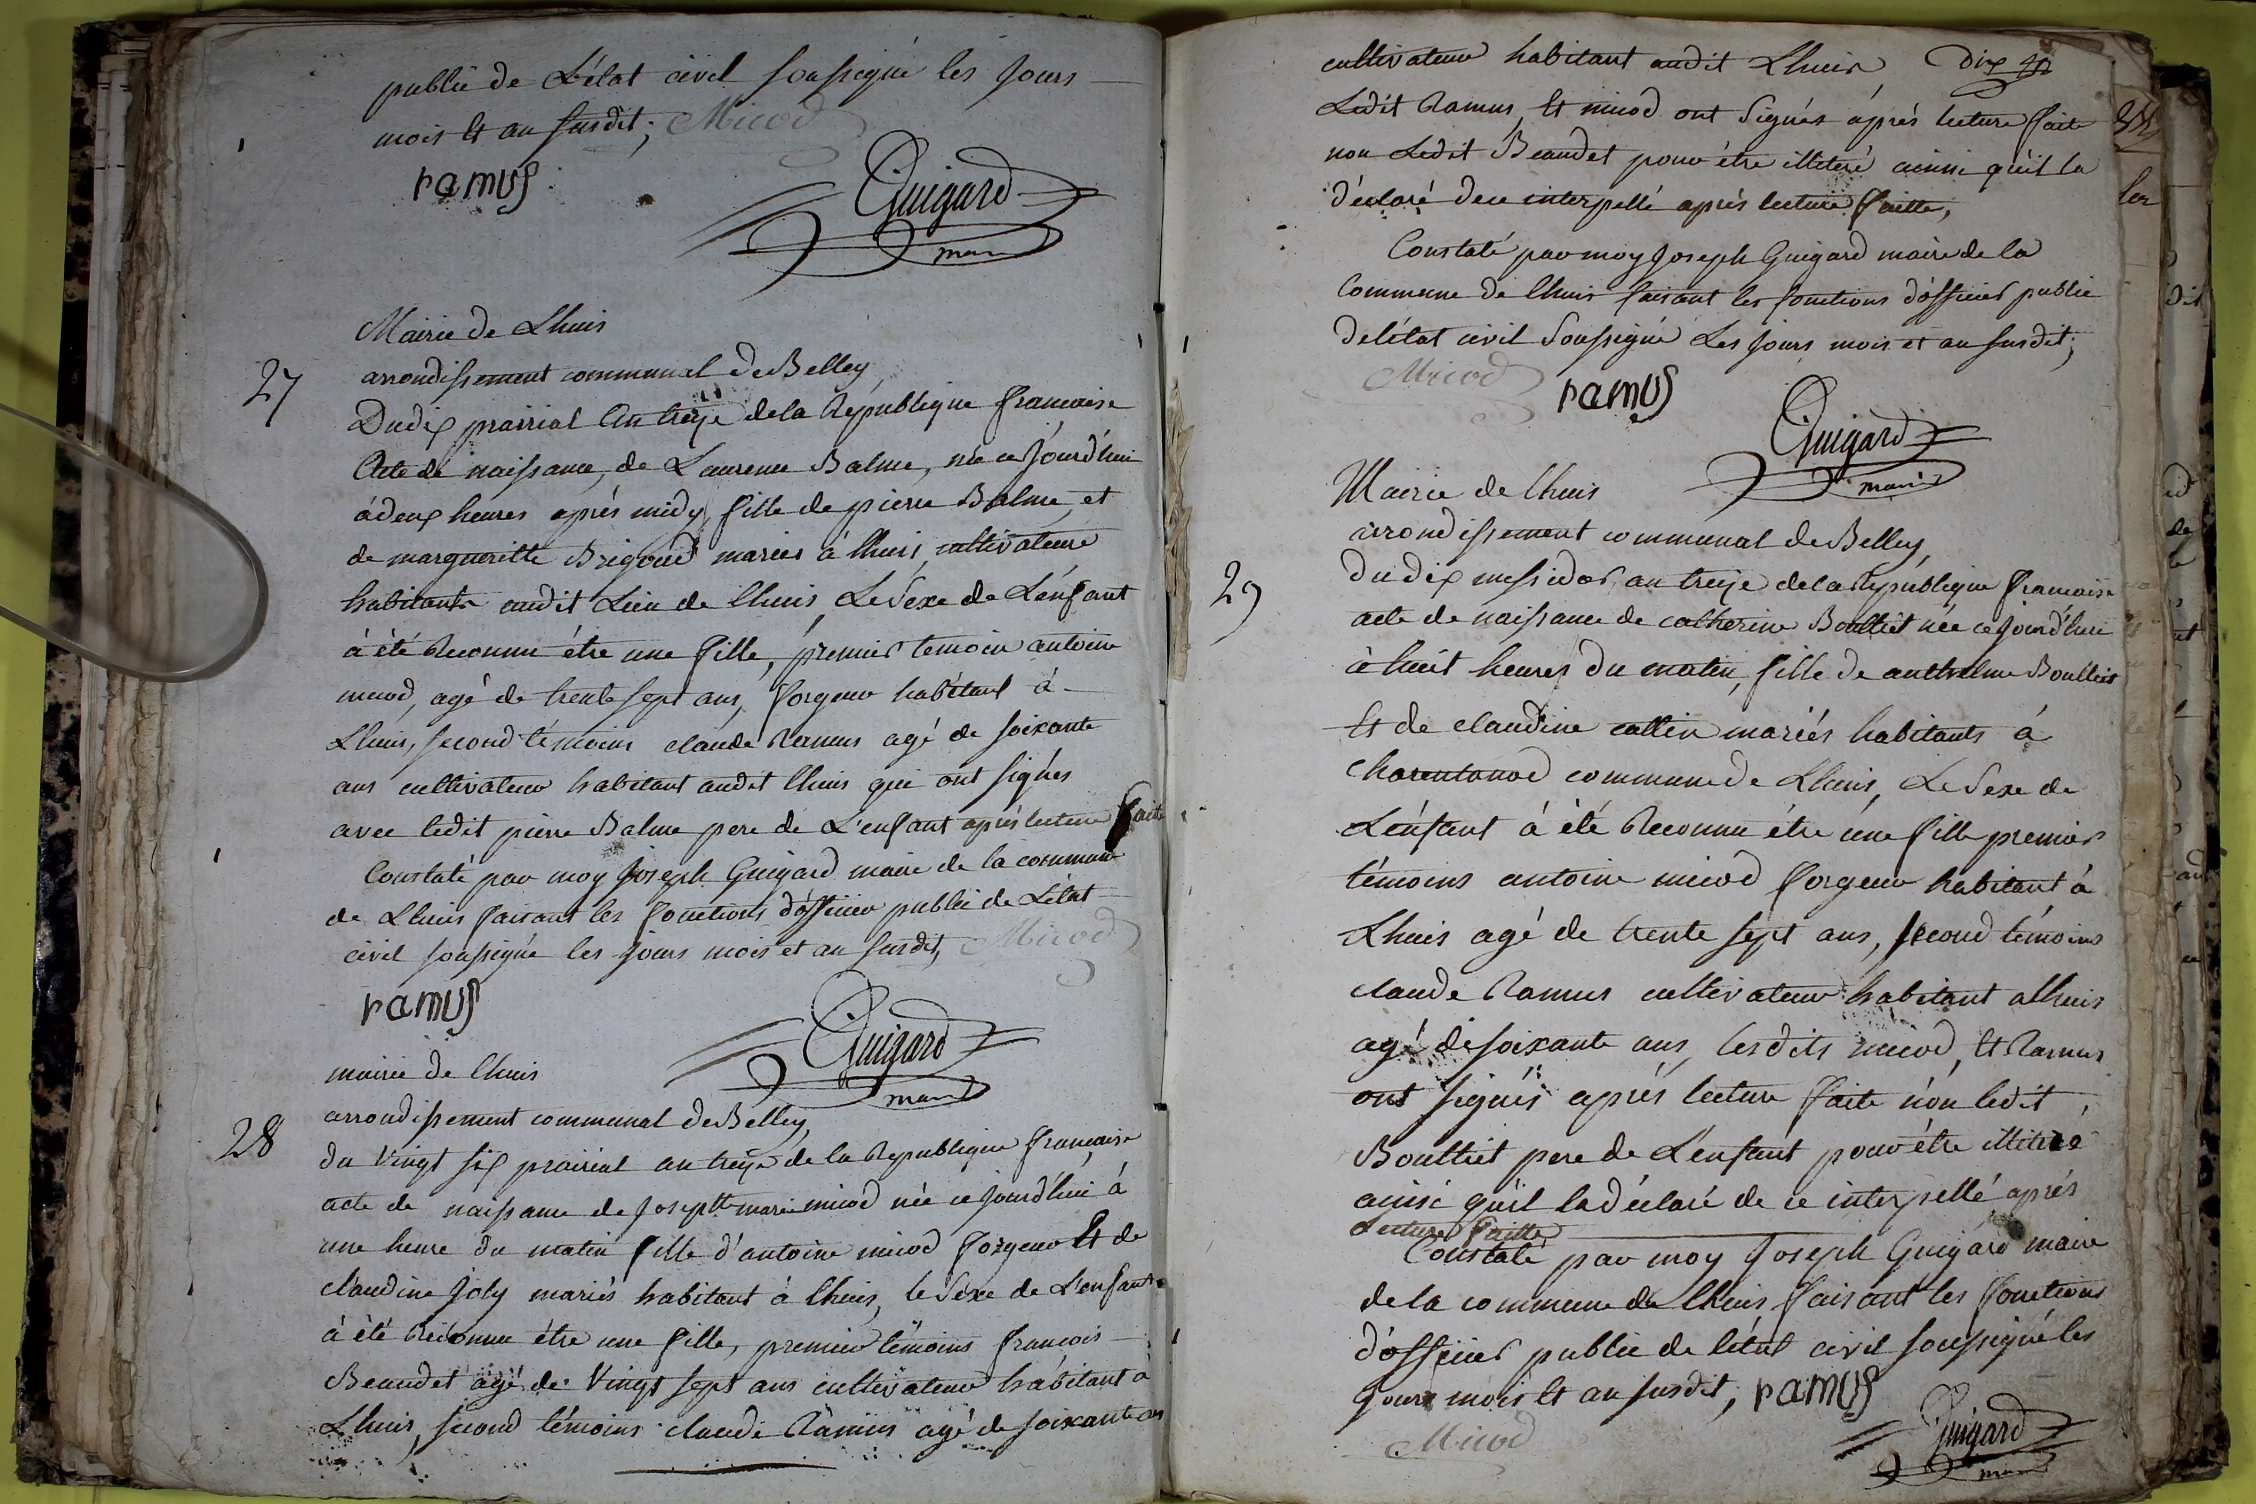 publié de L'état civil soussigné les Jours
mois et an susdit; Micod
ramus
Guigard
maire
Mairie de Lhuis
27
arrondissement communal de Belley
Du dix prairial an treize de la République française
Acte de naissance, de Laurence Balme, née ce Jourd'hui
à deux heures après midy, fille de pierre Balme, et
de margueritte Brigoud mariés à lhuis, cultivateurs
habitants audit Lieu de lhuis, Le Sexe de L'enfant
à été Reconnu être une fille, premier temoin antoine
micod, agé de trente sept ans, forgeur habitant à
Lhuis, second témoins claude Ramus agé de soixante
ans cultivateur habitant audit lhuis qui ont signés
avec ledit pierre Balme pere de L'enfant après lecture faite
Constaté par moy Joseph Guigard maire de la commune
de Lhuis faisant les fonctions d'officier public de L'état
civil soussigné les jours mois et an susdit, Micod
ramus
Guigard
maire
mairie de lhuis
28
arrondissement communal de Belley,
du vingt six prairial an treize de la Republique française
acte de naissance de Josephte marie micod née ce jourd'hui à
une heure du matin fille d'antoine micod forgeur Et de
claudine Joly mariés habitant à lhuis, le Sexe de L'enfant
à été Reconnu être une fille, premier témoins francois
Beaudet agé de Vingt sept ans cultivateur habitant à
Lhuis, second témoins claude Ramus agé de soixante ans
cultivateur habitant audit Lhuis
Ledit Ramus, Et micod ont Signés après lecture faite
non Ledit Beaudet pour être illiteré ainsi qu'il la
déclaré de ce interpellé après lecture faitte,
Constaté par moy Joseph Guigard maire de la
Commune de lhuis faisant les fonctions d'officier public
de l'état civil Soussigné Les Jours mois et an susdit;
Micod ramus
Guigard
maire
Mairie de lhuis
arrondissement communal de Belley,
29
du dix messidor, an treize de la République francaise
acte de naissance de catherine Boulliet née ce jourd'hui
à huit heures du matin, fille de anthelme Boulliet
Et de claudine cattin mariés habitants à
charentonod commune de Lhuis, Le Sexe de
L'enfant à été Reconnu être une fille premier
témoins antoine micod forgeur habitant à
Lhuis agé de trente sept ans, second témoins
claude Ramus cultivateur habitant alhuis
agé de soixante ans, lesdits micod, Et Ramus
ont signés après lecture faite non ledit
Boulliet pere de L'enfant pour être illiteré
ainsi qu'il la déclaré de ce interpellé après
Lecture faitte
Constaté par moy Joseph Guigard maire
de la commune de lhuis faisant les fonctions
d'officier public de l'état civil soussigné les
Jours mois Et an susdit, ramus
Micod
Guigard
maire